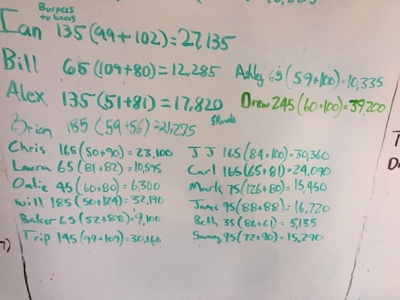 Burpees
to knees
Ian 135(99+102)=27,135
Bill 65(109+80)=12,285
Ashley 65(59+100)=10,335
Alex 135(51+81)=17,820
Drew 245(60+100)=39,200
Brian 185(59+56)=21,275
Chris 165(50+90)=23,100
JJ 165(84+100)=30,360
Laura 65(81+82)=10,595
Carl 165(65+81)=24,090
45(60+80)=6,300
Mark 75(126+80)=15,450
Will 185(50+124)=32,190
95(88+88)=16,720
Baker 65(52+88)=9,100
Beth 35(86+61)=5,135
Trip 145(99+109)=30,160
95(72+90)=15,290